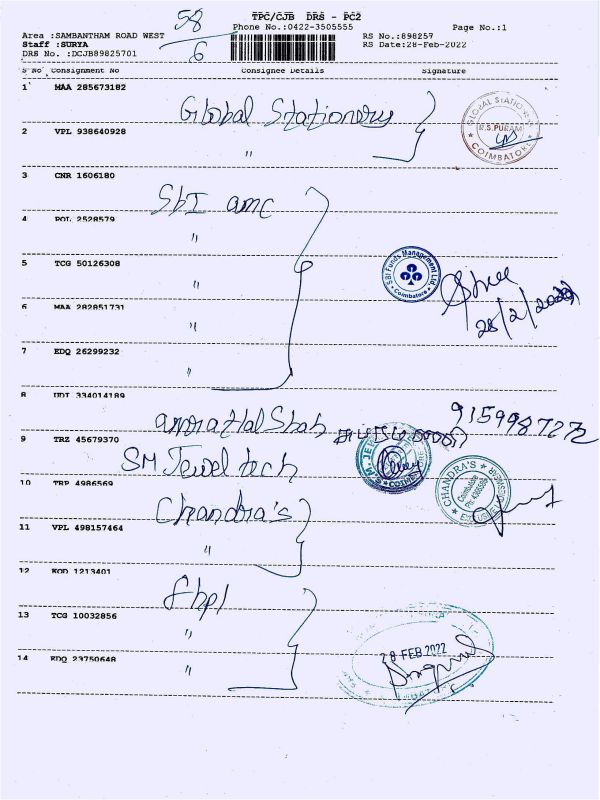 58
6
TPC/CJB DRS - PC2
Phone No.:0422-3505555
Page No.:1
Area :SAMBANTHAM ROAD WEST
RS No.:898257
Staff :SURYA
RS Date:28-Feb-2022
DRS No. :DCJB89825701
S No Consignment No Consignee Details Signature
1 MAA 285673182
Global Stationery
2 VPL 938640928
"
GLOBAL STATIONERY
R.S.PURAM
COIMBATORE
3 CNR 1606180
SbI amc
4 POL 2528579
"
5 TCG 50126308
"
SBI Funds Management Ltd.
Coimbatore
28/2/2022
6 MAA 282851731
"
7 EDQ 26299232
"
8 UDT 334014189
Shah
9159987272
9 TRZ 45679370
SM Jewel tech
10 TRP 4986569
Chandra's
CHANDRA'S
Coimbatore
11 VPL 498157464
"
12 KOD 1213401
13 TCG 10032856
"
14 EDQ 23750648
"
28 FEB 2022